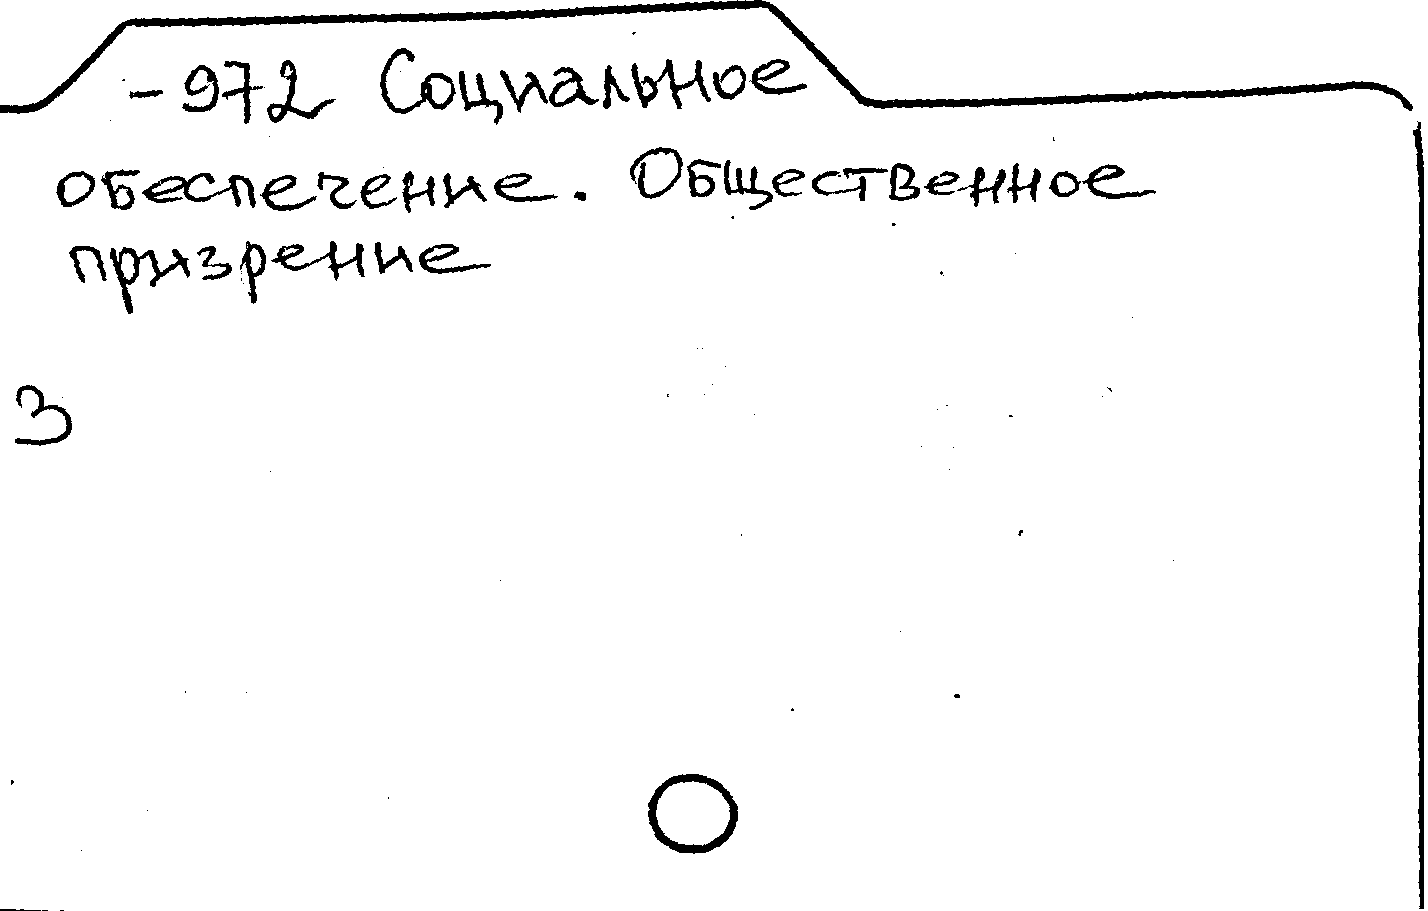 -972 Социальное
обеспечение. Общественное
призрение
3